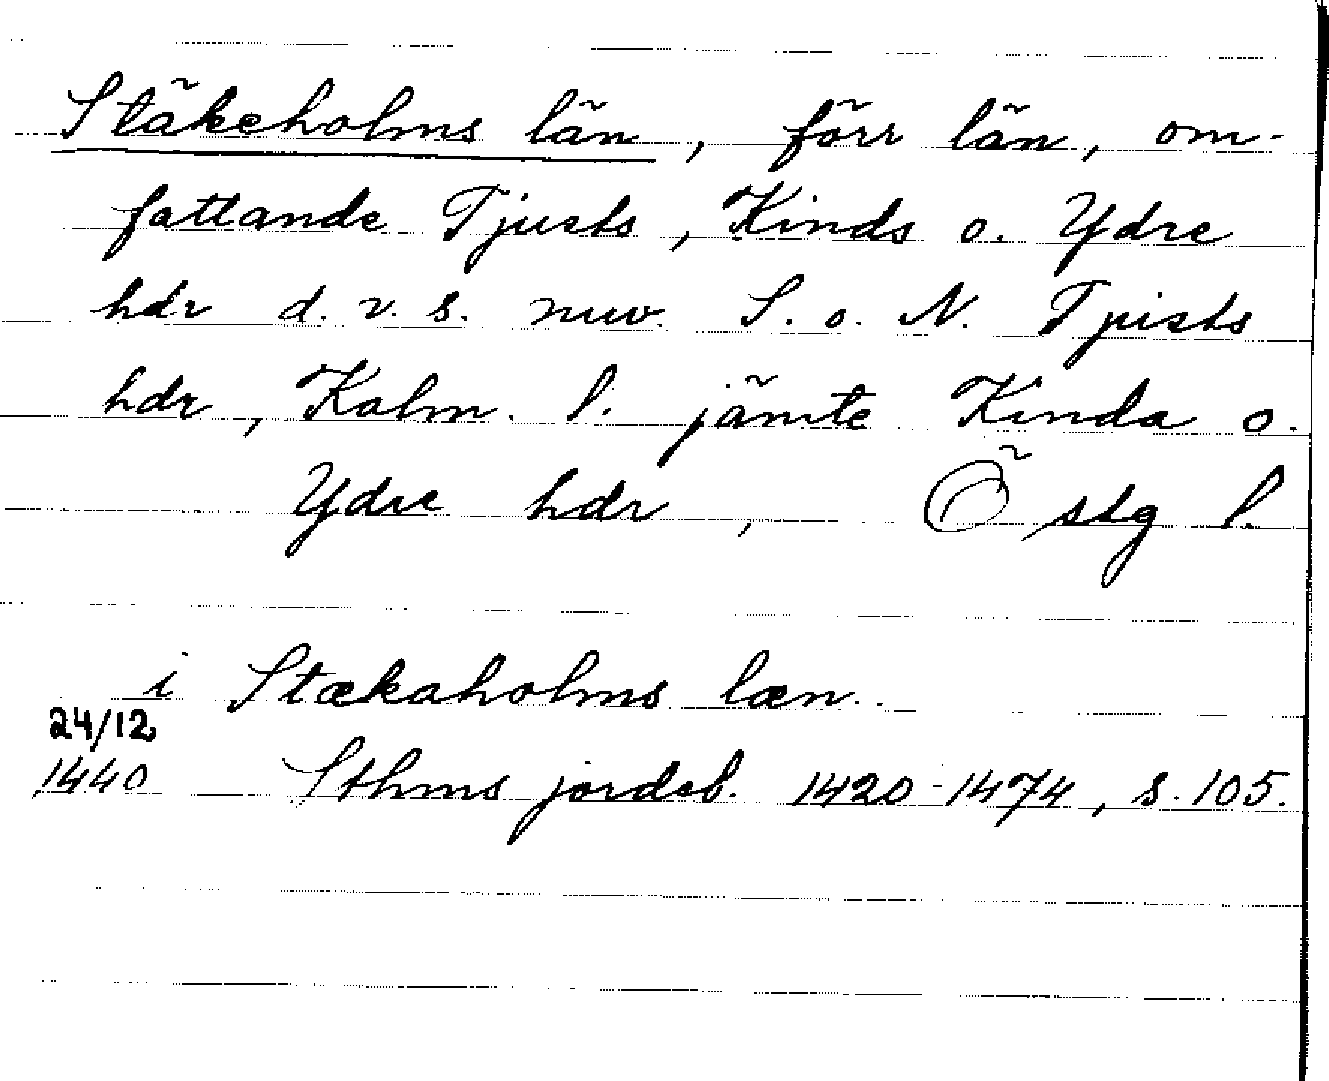 Stäkeholms län, förr län, om-
fattande Tjusts, Kinds o. Ydre
hdr d. v. s. nuv. S. o. N. Tjusts
hdr, Kalm. l. jämte Kinda o.
Ydre hdr, Östg l.
i Stækaholms læn.
24/12
1440 Sthms jordeb. 1420-1474, s. 105.